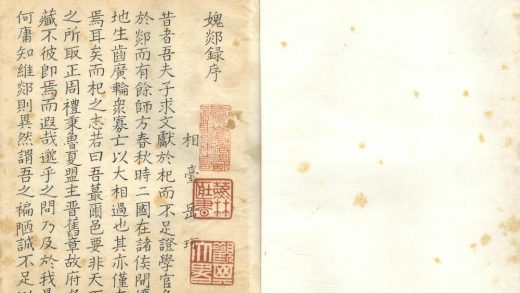 媿郯録序
相臺岳珂
昔者吾夫子求文獻於杞而不足證學官
於郯而有餘師方春秋時二國在諸侯間
地生齒廣輪衆寡士以大相過也其亦僅
焉耳矣而杞之志若曰吾蕞爾邑要非天下
之所取正周禮秉魯夏盟主晋舊章故府
藏不彼卽焉而遐哉邈乎之問乃及於我是
何庸知維郯則異然謂吾之褊陋誠不足以